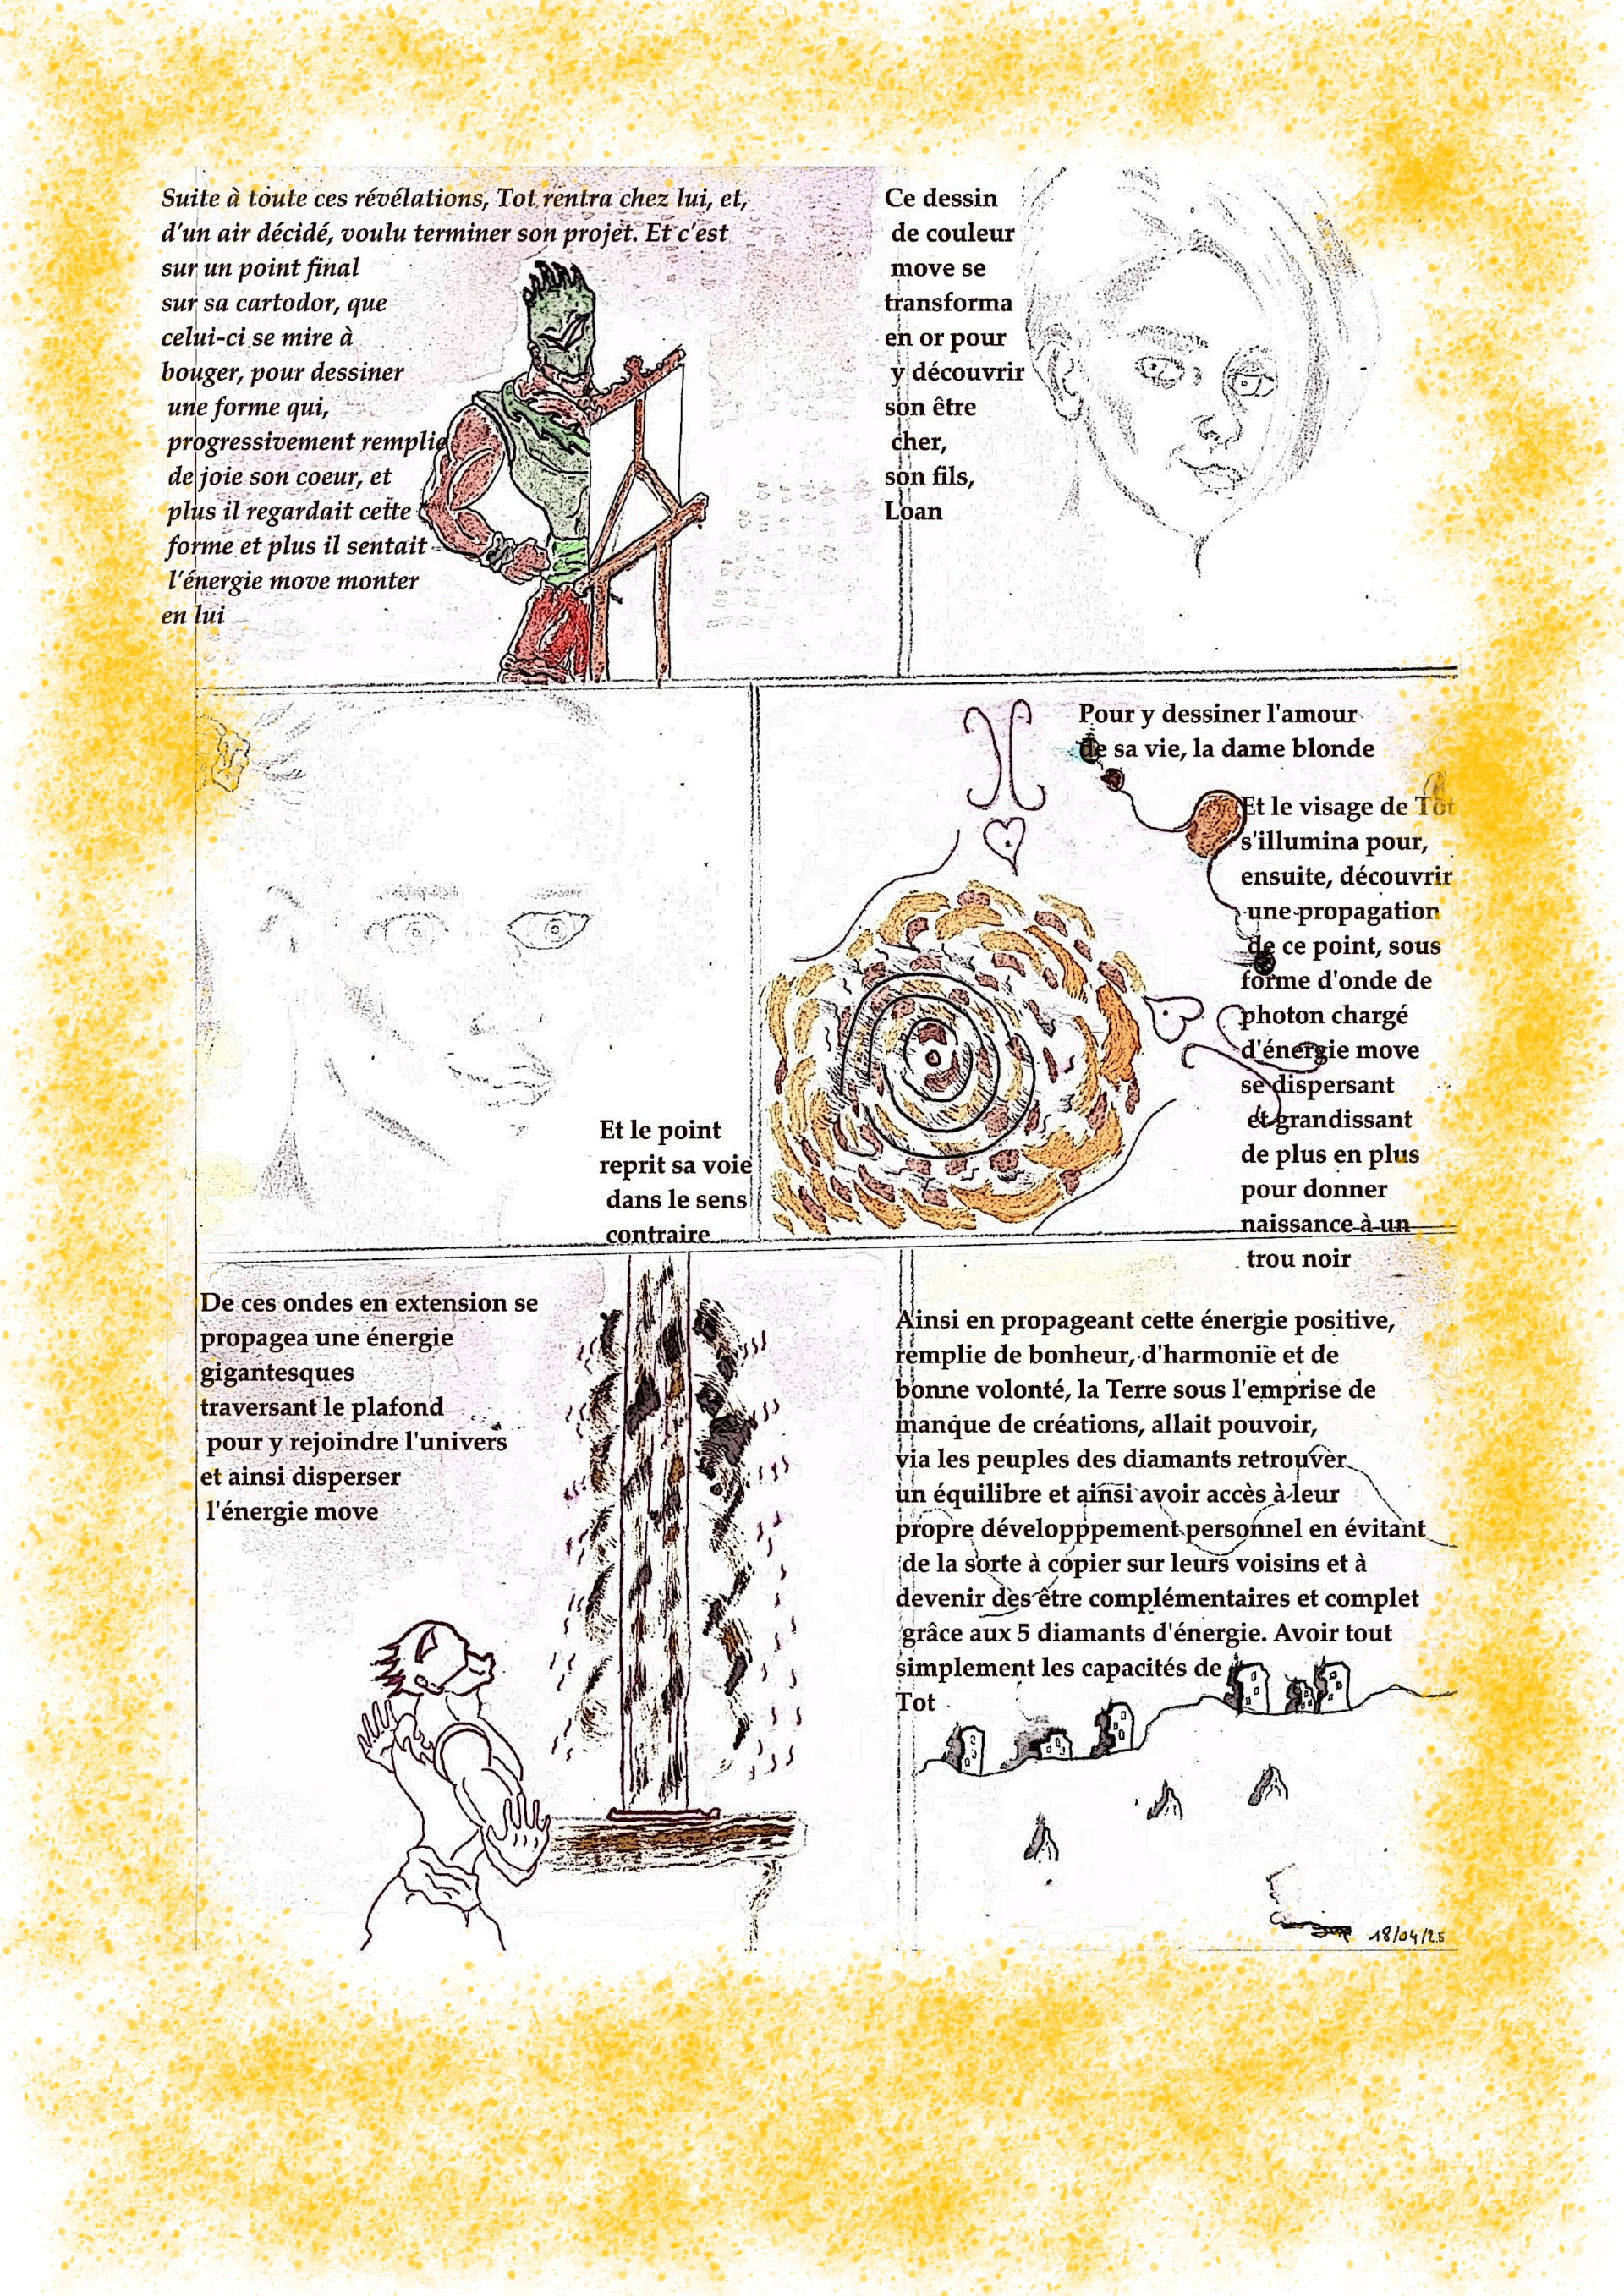 Suite à toute ces révélations, Tot rentra chez lui, et,
d'un air décidé, voulu terminer son projet. Et c'est
sur un point final
sur sa cartodor, que
celui-ci se mire à
bouger, pour dessiner
une forme qui,
progressivement remplie
de joie son coeur, et
plus il regardait cette
forme et plus il sentait
l'énergie move monter
en lui
Ce dessin
de couleur
move se
transforma
en or pour
y découvrir
son être
cher,
son fils,
Loan
Et le point
reprit sa voie
dans le sens
contraire
Pour y dessiner l'amour
de sa vie, la dame blonde
Et le visage de Tot
s'illumina pour,
ensuite, découvrir
une propagation
de ce point, sous
forme d'onde de
photon chargé
d'énergie move
se dispersant
et grandissant
de plus en plus
pour donner
naissance à un
trou noir
De ces ondes en extension se
propagea une énergie
gigantesques
traversant le plafond
pour y rejoindre l'univers
et ainsi disperser
l'énergie move
Ainsi en propageant cette énergie positive,
remplie de bonheur, d'harmonie et de
bonne volonté, la Terre sous l'emprise de
manque de créations, allait pouvoir,
via les peuples des diamants retrouver
un équilibre et ainsi avoir accès à leur
propre développpement personnel en évitant
de la sorte à copier sur leurs voisins et à
devenir des être complémentaires et complet
grâce aux 5 diamants d'énergie. Avoir tout
simplement les capacités de
Tot
18/04/25